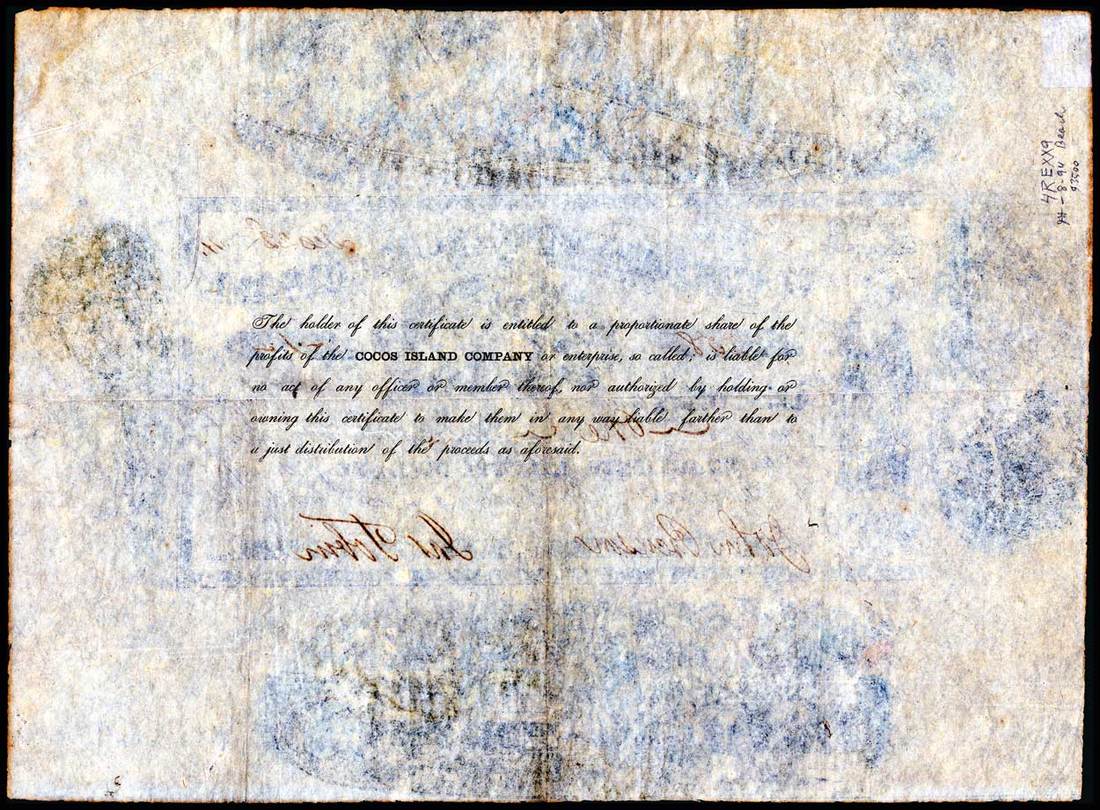 The holder of this certificate is entitled to a proportionate share of the
profits of the COCOS ISLAND COMPANY or enterprise, so called; is liable for
no act of any officer or member thereof, nor authorized by holding or
owning this certificate to make them in any way liable farther than to
a just distribution of the proceeds as aforesaid.
Jno Tobin John
4REXX9
8-94 Beach
93500